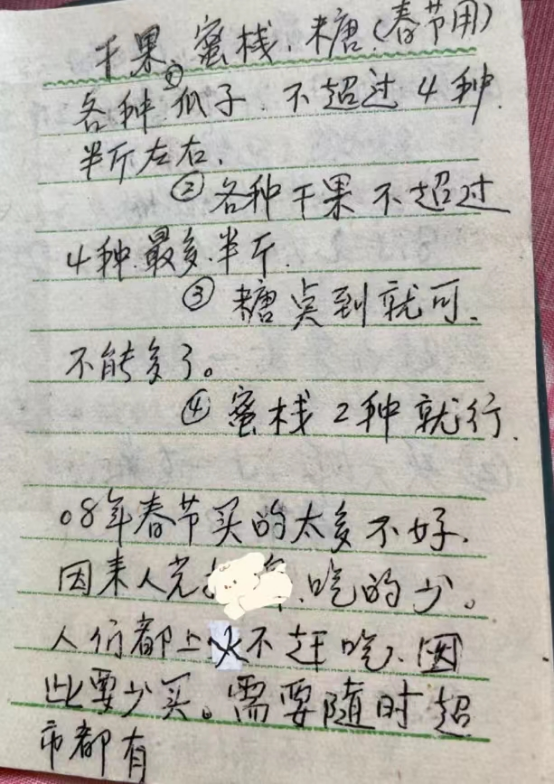 干果、蜜栈、糖(春节用)
①
各种瓜子.不超过4种.
半斤左右.
②各种干果不超过
4种.最多半斤.
③糖点到就可.
不能多了。
④蜜栈2种就行.
08年春节买的太多不好.
因来人光 .吃的少。
人们都上火不敢吃、因
此要少买。需要随时超
市都有